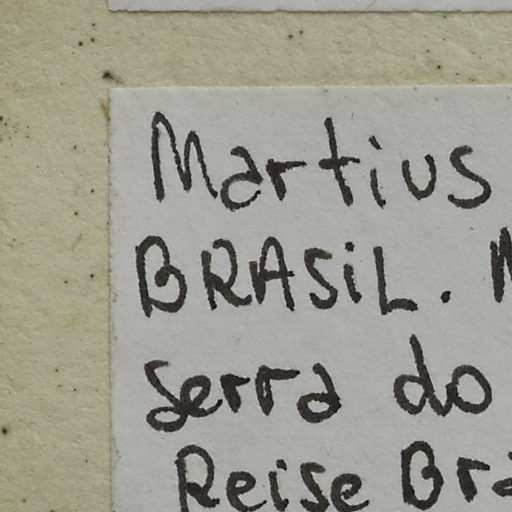 Martius
BRASiL.
Serra do
Reise